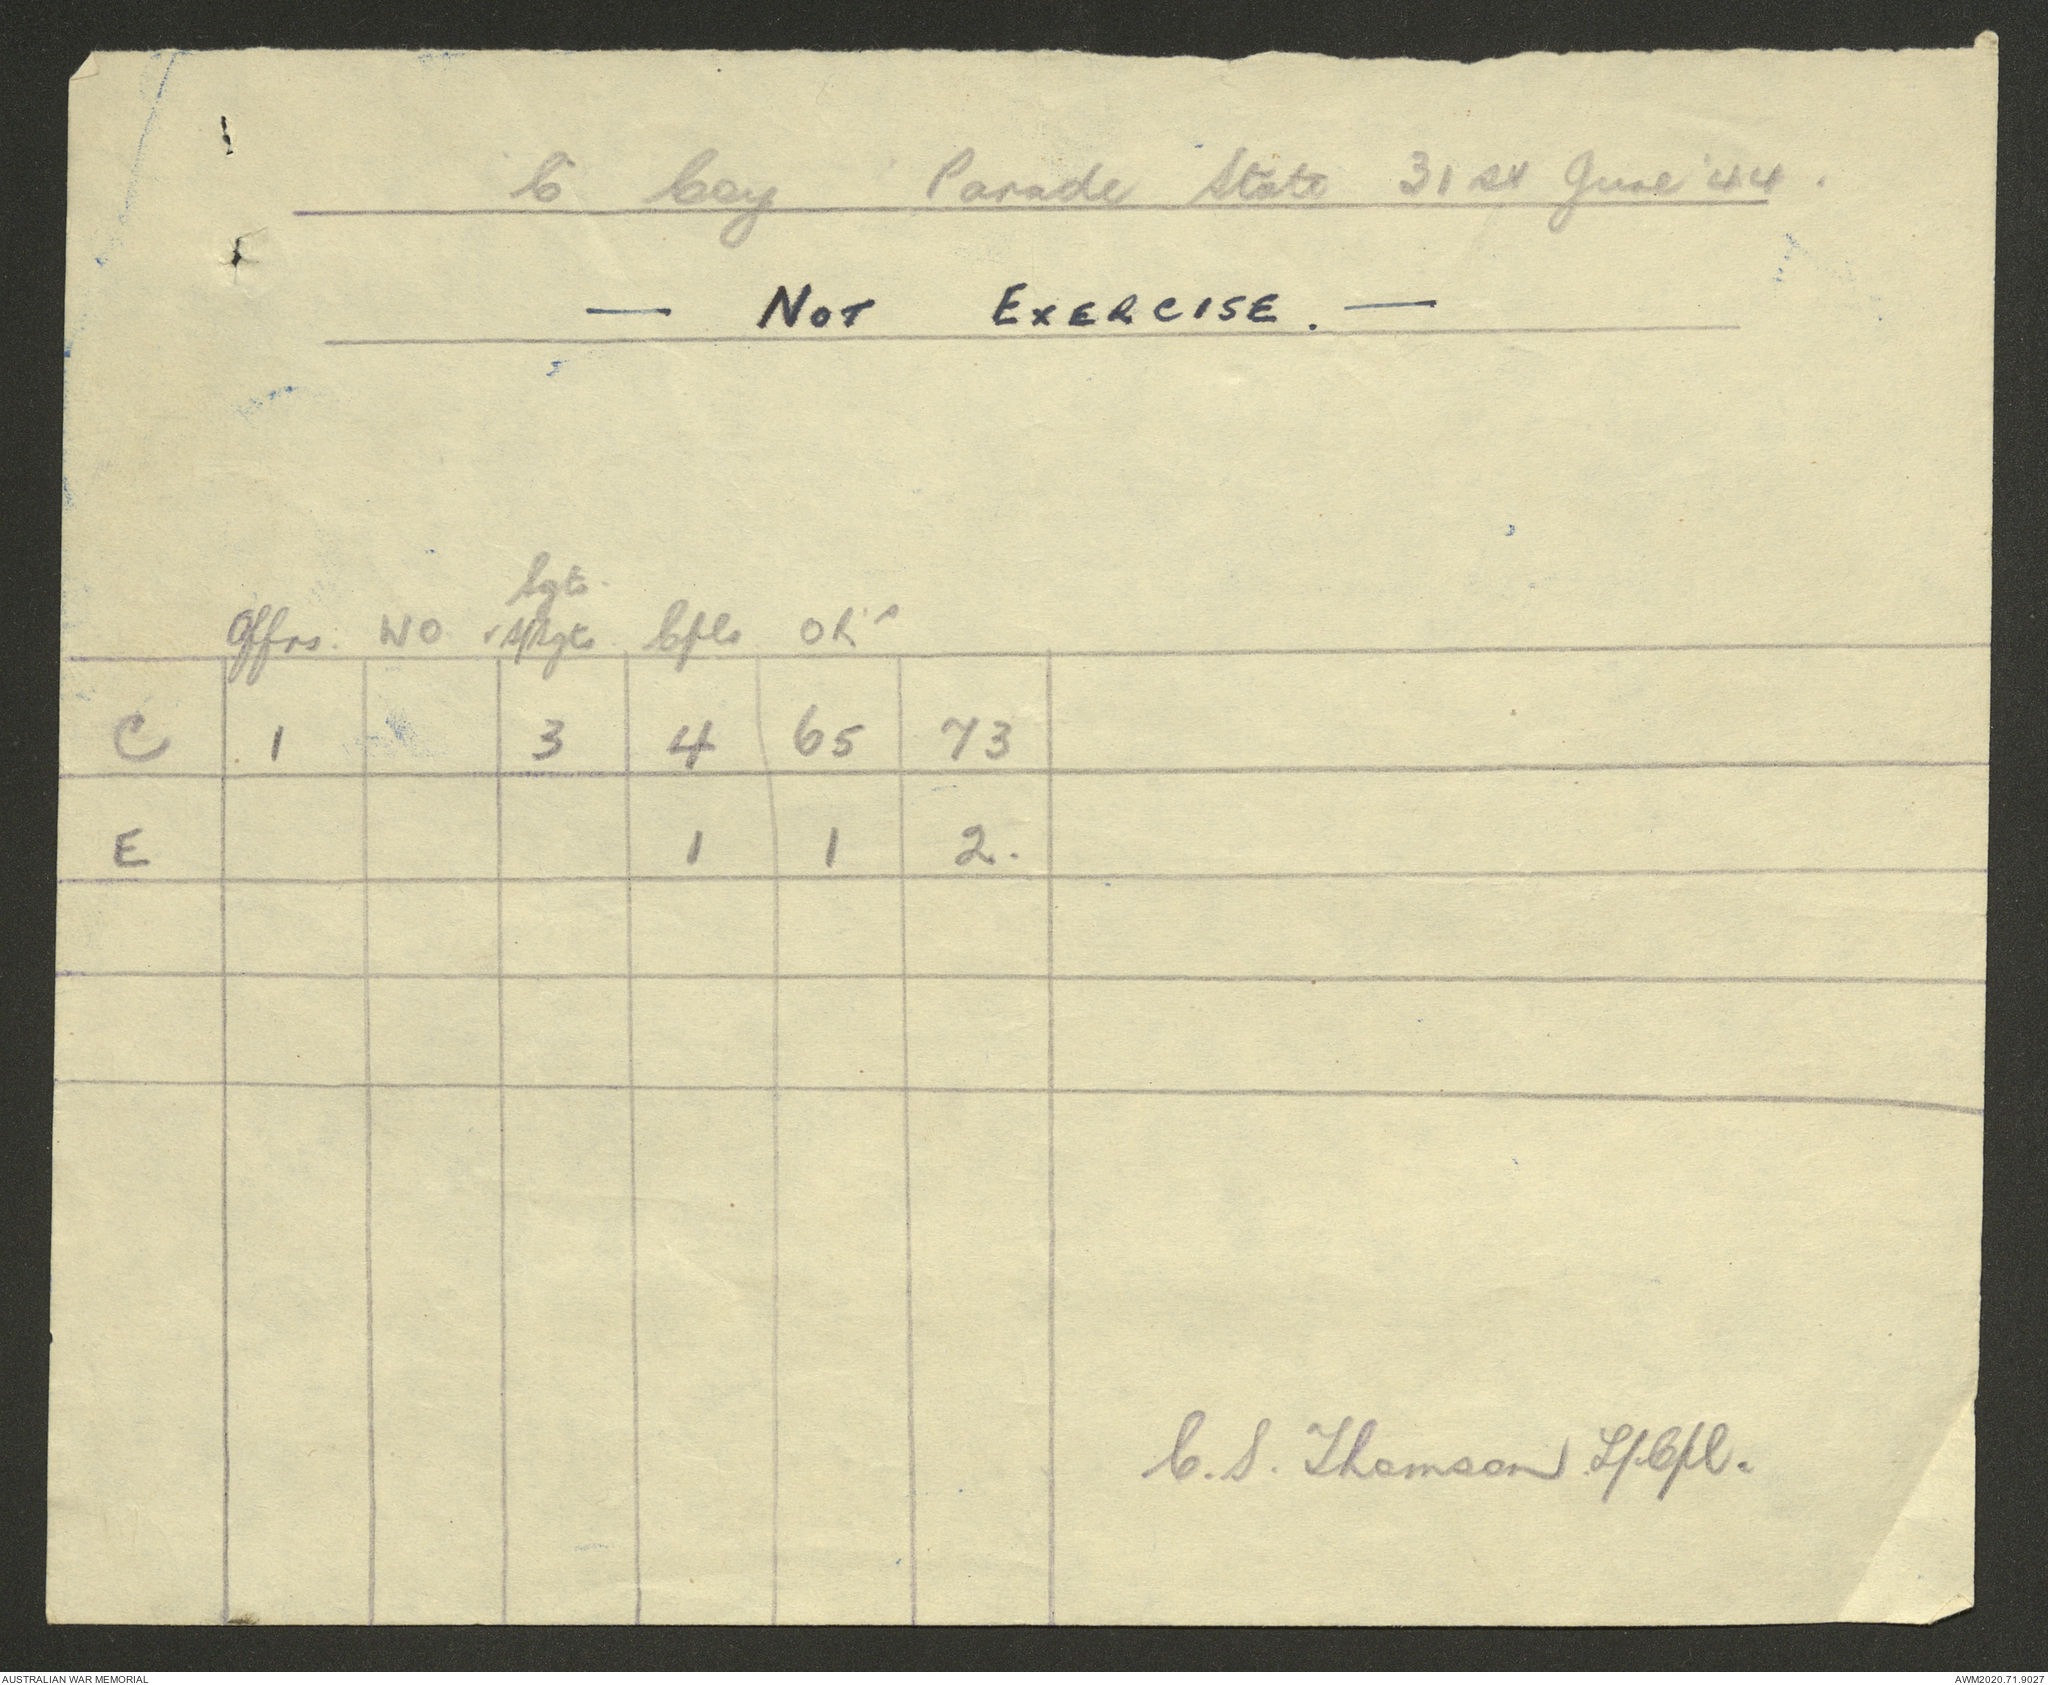 C Coy Parade State 31st June '44.
— NOT EXERCISE. —
Sgts.
Offrs. WO S/Sgts Cpls OR's
C 1 3 4 65 73
E 1 1 2.
C. S. Thomson L/Cpl.
AUSTRALIAN WAR MEMORIAL
AWM2020.71.9027